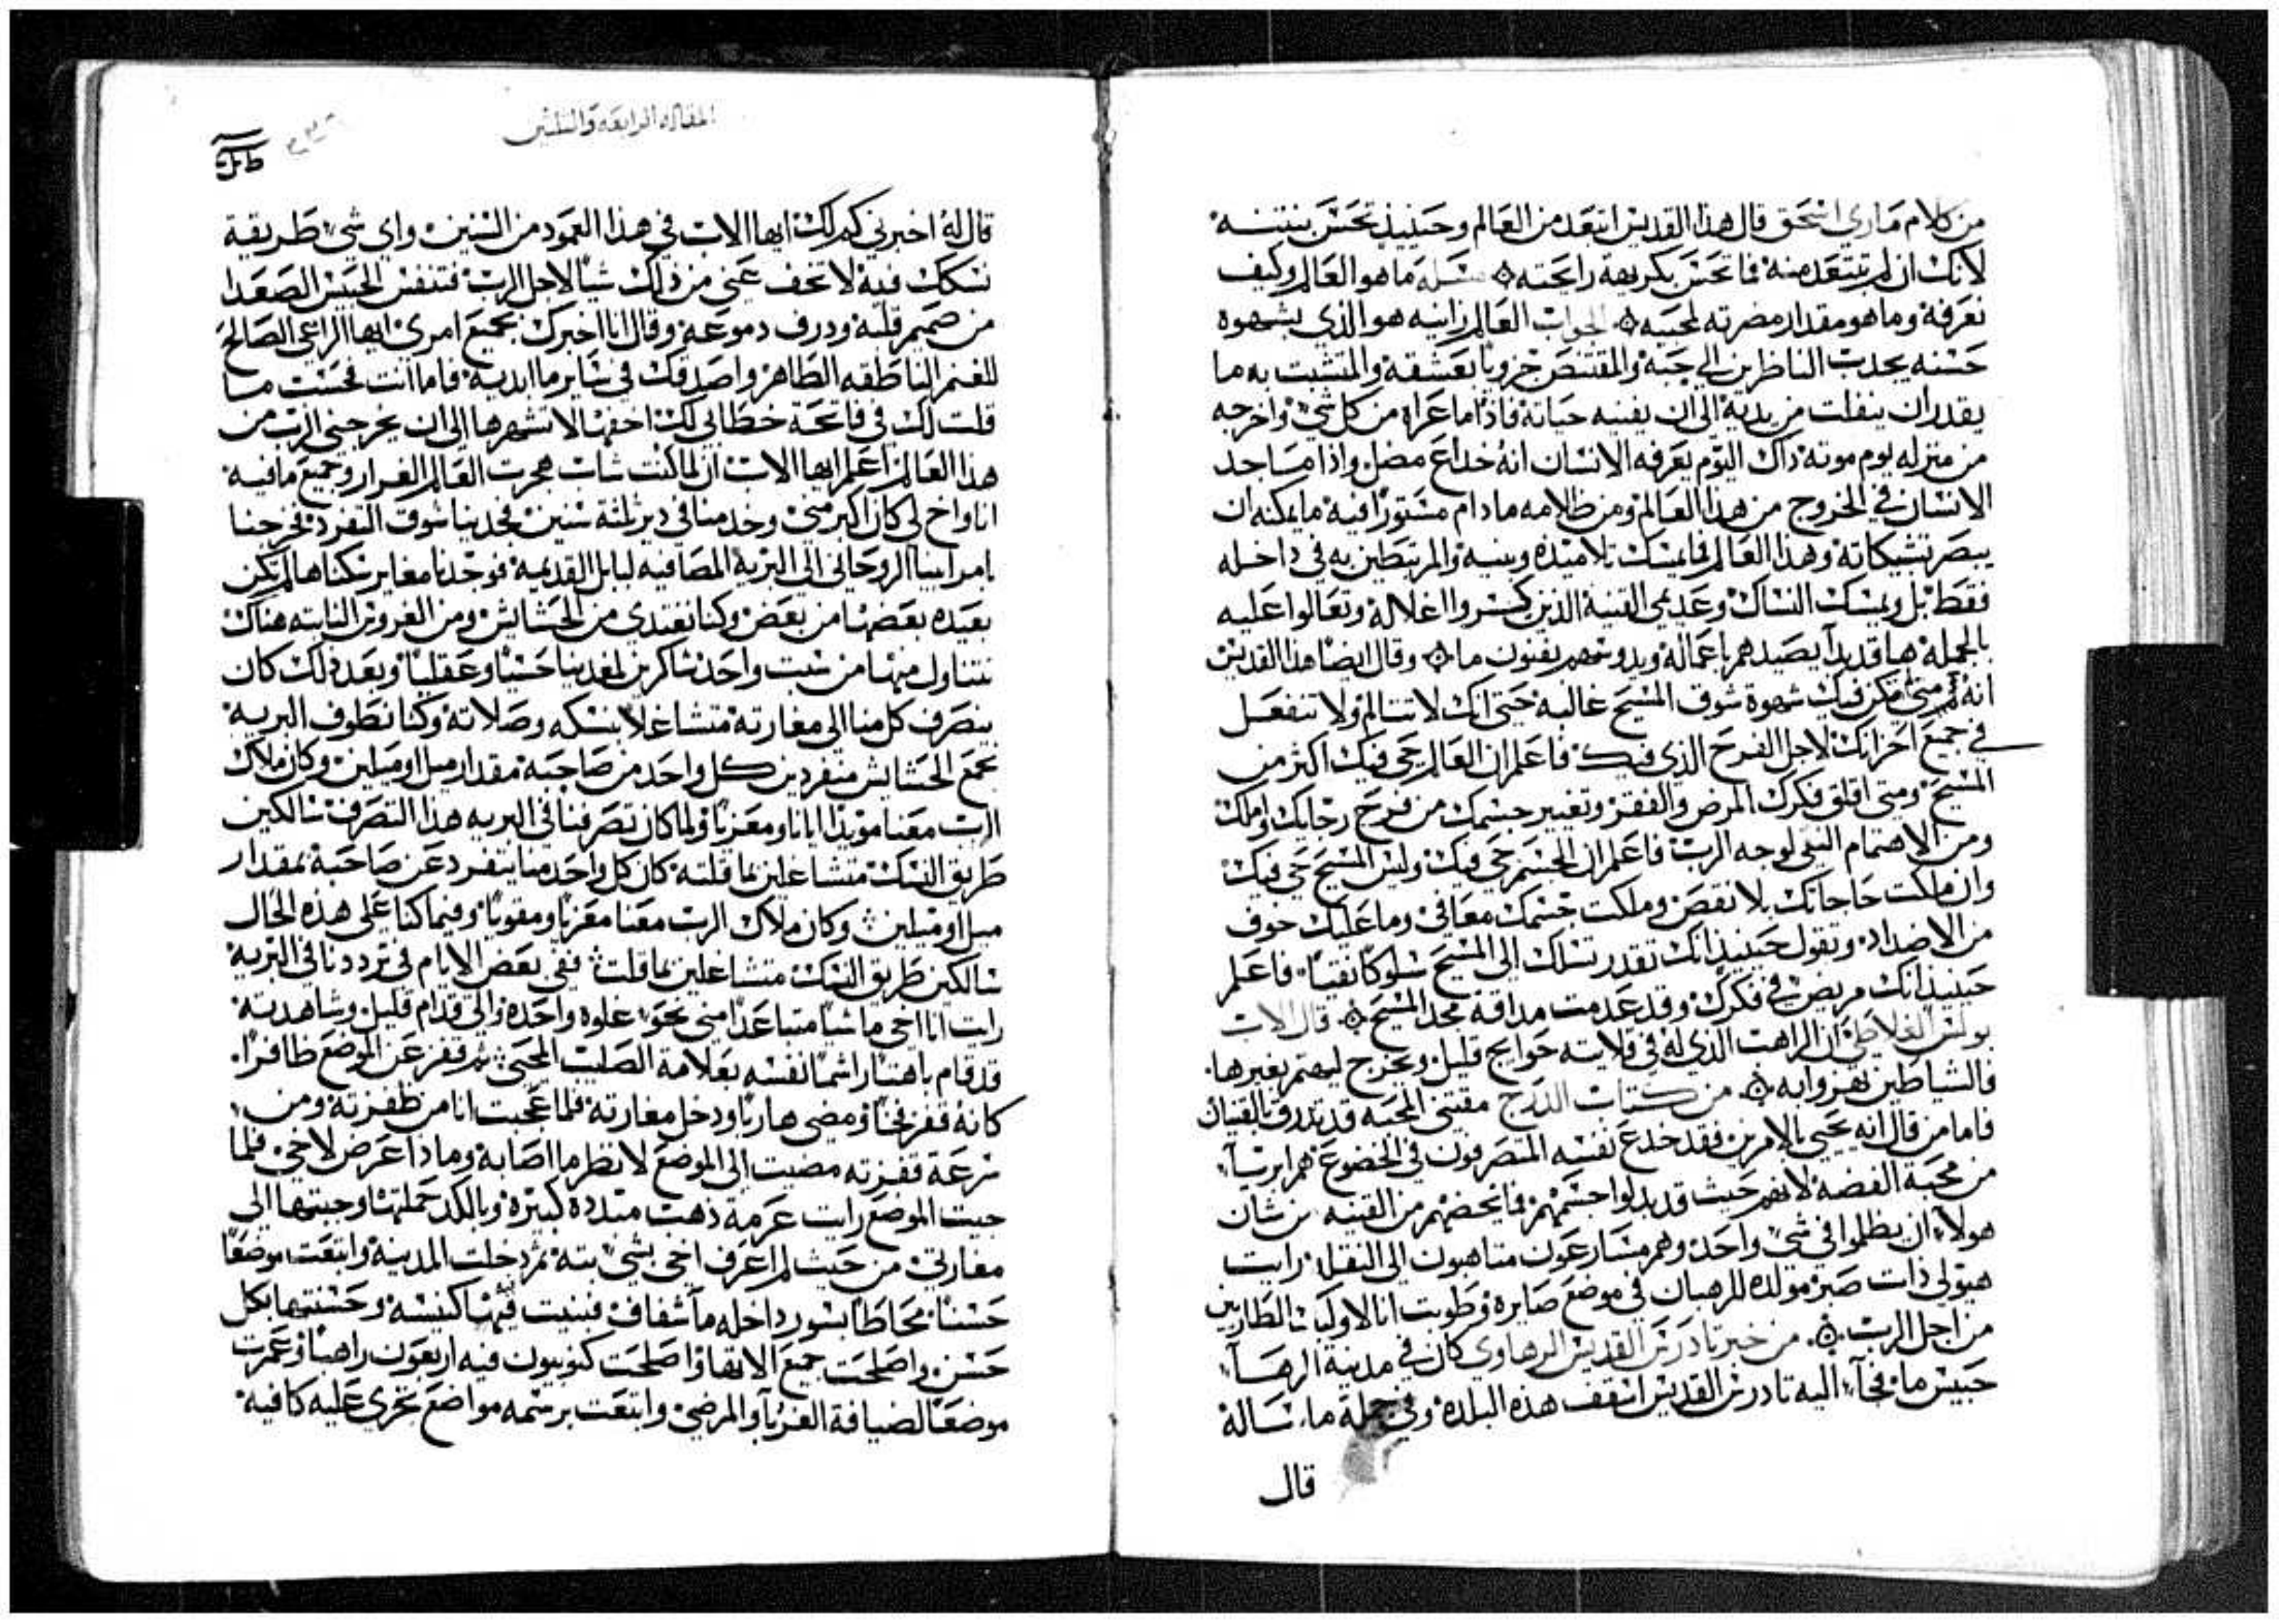 من كلام ماري اسحق قال هذا القديس ابتعد من العالم وحينيذ تحس بنتنه
لانك ان لم تبتعد منه فما تحس بكريهة رايحته مسله ما هو العالم وكيف
نعرفه وما هو مقدار مضرته لمحبيه الجواب العالم زانيه هو الذي بشهوة
حسنه يجدب الناظرين الي حبه والمقتنص جزويا بعشقه والمتشبت به ما
يقدر ان ينفلت من يديه الى ان يفنيه حياته فاذا ما عراه من كل شي واخرجه
من منزله يوم موته ذاك اليوم يعرفه الانسان انه خداع مضل واذا ما جد
الانسان في الخروج من هذا العالم ومن ظلامه ما دام مستورا فيه ما يمكنه ان
يبصر تشبكاته وهذا العالم فما يمسك تلاميذه وبنيه والمرتبطين به في داخله
فقط بل ويمسك النساك وعديمي القنيه الذين كسروا اغلاله وتعالوا عليه
بالجمله ها قد بدا يصيدهم باعماله ويدوسهم بفنون ما وقال ايضا هذا القديس
انه متى لم تكن فيك شهوة شوق المسيح غالبه حتى انك لا تتالم ولا تنفعل
في جميع احزانك لاجل الفرح الذي فيك فاعلم ان العالم حي فيك اكثر من
المسيح ومتى اقلق فكرك المرض والفقر وتغيير جسمك من فرح رجايك واملك
ومن الاهتمام النقي لوجه الرب فاعلم ان الجسم حي فيك وليس المسيح حي فيك
وان ملكت حاجاتك بلا نقص وملكت جسمك معافى وما عليك خوف
من الاضداد وتقول حينيذ انك تقدر تسلك الى المسيح سلوكا نقيا فاعلم
حينيذ انك مريض في فكرك وقد عدمت مداقة مجد المسيح قال الاب
بولس الغلاطي ان الراهب الذي له في قلايته حوايج قليل ويخرج ليهتم بغيرها
فالشياطين تهزوا به من كتاب الدرج مقتني المحبه قد بدرق بالقنيان
فاما من قال انه يحيى بالامرين فقد خدع نفسه المتصرفون في الخضوع هم ابريا
من محبة الفضه لانهم حيث قد بدلوا جسمهم فما يخصهم من القنيه من شان
هولا ان يظلموا في شي واحد وهم مسارعون متاهبون الى النقله رايت
هيولي ذات صبر مولده للرهبان في موضع صابره وطوبت انا الاوليك الطاربين
من اجل الرب من خبر تادرس القديس الرهاوي كان في مدينة الرها
حبيس ما فجا اليه تادرس القديس اسقف هذه البلدة وفي جملة ما ساله
قال
المقاله الرابعه والثلثين
قال له اخبرني كم لك ايها الاب في هذا العمود من السنين واي شي طريقة
نسكك فيه لا تخف عني من ذلك شيا لاجل الرب فتنفس الحبيس الصعدا
من صميم قلبه ودرف دموعه وقال انا اخبرك بجميع امري ايها الراعي الصالح
للغنم الناطقه الطاهر واصدقك في ساير ما ابديه فاما انت فحسب ما
قلت لك في فاتحة خطابي لك احفها لا تشهرها الى ان يخرجني الرب من
هذا العالم اعلم ايها الاب ان لما كنت شاب هجرت العالم الغرار وجميع ما فيه
انا واخ لي كان اكبر مني وخدمنا في دير ثلثة سنين فجدبنا شوق التفرد فخرجنا
بامر ابينا الروحاني الى البرية المصاقبه لبابل القديمه فوجدنا مغاير سكناها لم تكن
بعيده بعضها من بعض وكنا نغتدي من الحشايش ومن العروق النابته هناك
نتناول منها من سبت واحد شاكرين لمغدينا حسيا وعقليا وبعد ذلك كان
ينصرف كل منا الى مغارته متشاغلا بنسكه وصلاته وكنا نطوف البريه
نجمع الحشايش منفردين كل واحد من صاحبه مقدار ميل او ميلين وكان ملاك
الرب معنا مويدا ايانا ومعزيا ولما كان تصرفنا في البريه هذا التصرف سالكين
طريق النسك متشاغلين بما قلته كان كل واحد منا ينفرد عن صاحبه بمقدار
ميل او ميلين وكان ملاك الرب معنا معزيا ومقويا وفيما كنا على هذه الحال
سالكين طريق النسك متشاغلين بما قلت ففي بعض الايام في ترددنا في البريه
رايت انا اخي ماشيا متباعدا مني نحو غلوه واحده والى قدام قليل وشاهدته
قد قام باهتا راشما نفسه بعلامة الصليب المحيي ثم قفز عن الموضع ظافرا
كانه قفز فخا ومضى هاربا ودخل مغارته فلما عجبت انا من ظفرته ومن
سرعة قفزته مضيت الى الموضع لانظر ما اصابه وماذا عرض لاخي فلما
جيت الموضع رايت عرمة ذهب متددة كبيرة وبالكد حملتها وجبتها الى
مغارتي من حيث لم اعرف اخي بشي بته ثم دخلت المدينه وابتعت موضعا
حسنا محاطا بسور داخله ما شفاف فبنيت فيها كنيسه وحسنتها بكل
حسن واصلحت جميع الابها واصلحت كنوبيون فيه اربعون راهبا وعمرت
موضعا لضيافة الغربا والمرضى وابتعت برسمه مواضع تجري عليه كافيه